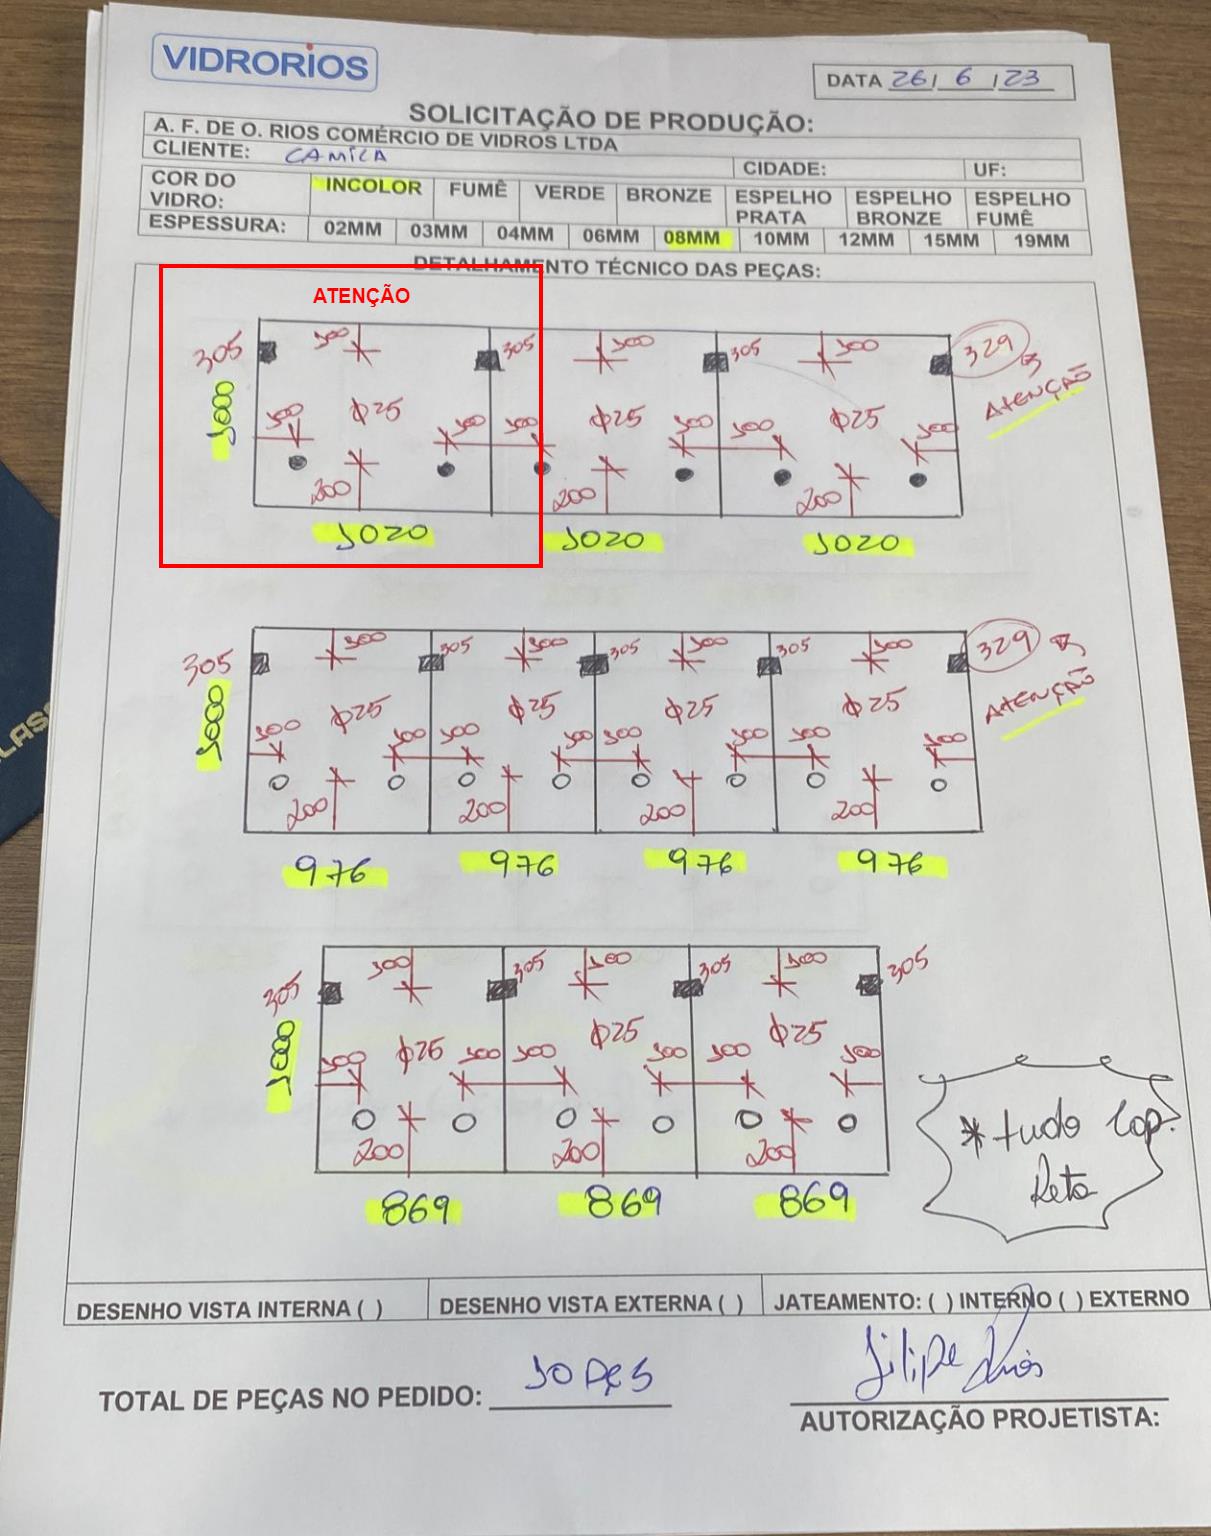 VIDRORIOS
DATA 26/ 6 /23
SOLICITAÇÃO DE PRODUÇÃO:
A. F. DE O. RIOS COMÉRCIO DE VIDROS LTDA
CLIENTE: CAMILA CIDADE: UF:
COR DO VIDRO: INCOLOR FUMÊ VERDE BRONZE ESPELHO PRATA ESPELHO BRONZE ESPELHO FUMÊ
ESPESSURA: 02MM 03MM 04MM 06MM 08MM 10MM 12MM 15MM 19MM
DETALHAMENTO TÉCNICO DAS PEÇAS:
ATENÇÃO
305 100 305 100 305 100 329
ATENÇÃO
1000 100 Φ25 100 100 Φ25 100 100 Φ25 100
200 200 200
1020 1020 1020
305 100 305 100 305 100 305 100 329
ATENÇÃO
1000 100 Φ25 100 100 Φ25 100 100 Φ25 100 100 Φ25 100
200 200 200 200
976 976 976 976
305 100 305 100 305 100 305
1000 100 Φ25 100 100 Φ25 100 100 Φ25 100
200 200 200
869 869 869
* tudo Lap.
Reta
DESENHO VISTA INTERNA ( ) DESENHO VISTA EXTERNA ( ) JATEAMENTO: ( ) INTERNO ( ) EXTERNO
TOTAL DE PEÇAS NO PEDIDO: 10 PÇS
Filipe Rios
AUTORIZAÇÃO PROJETISTA: